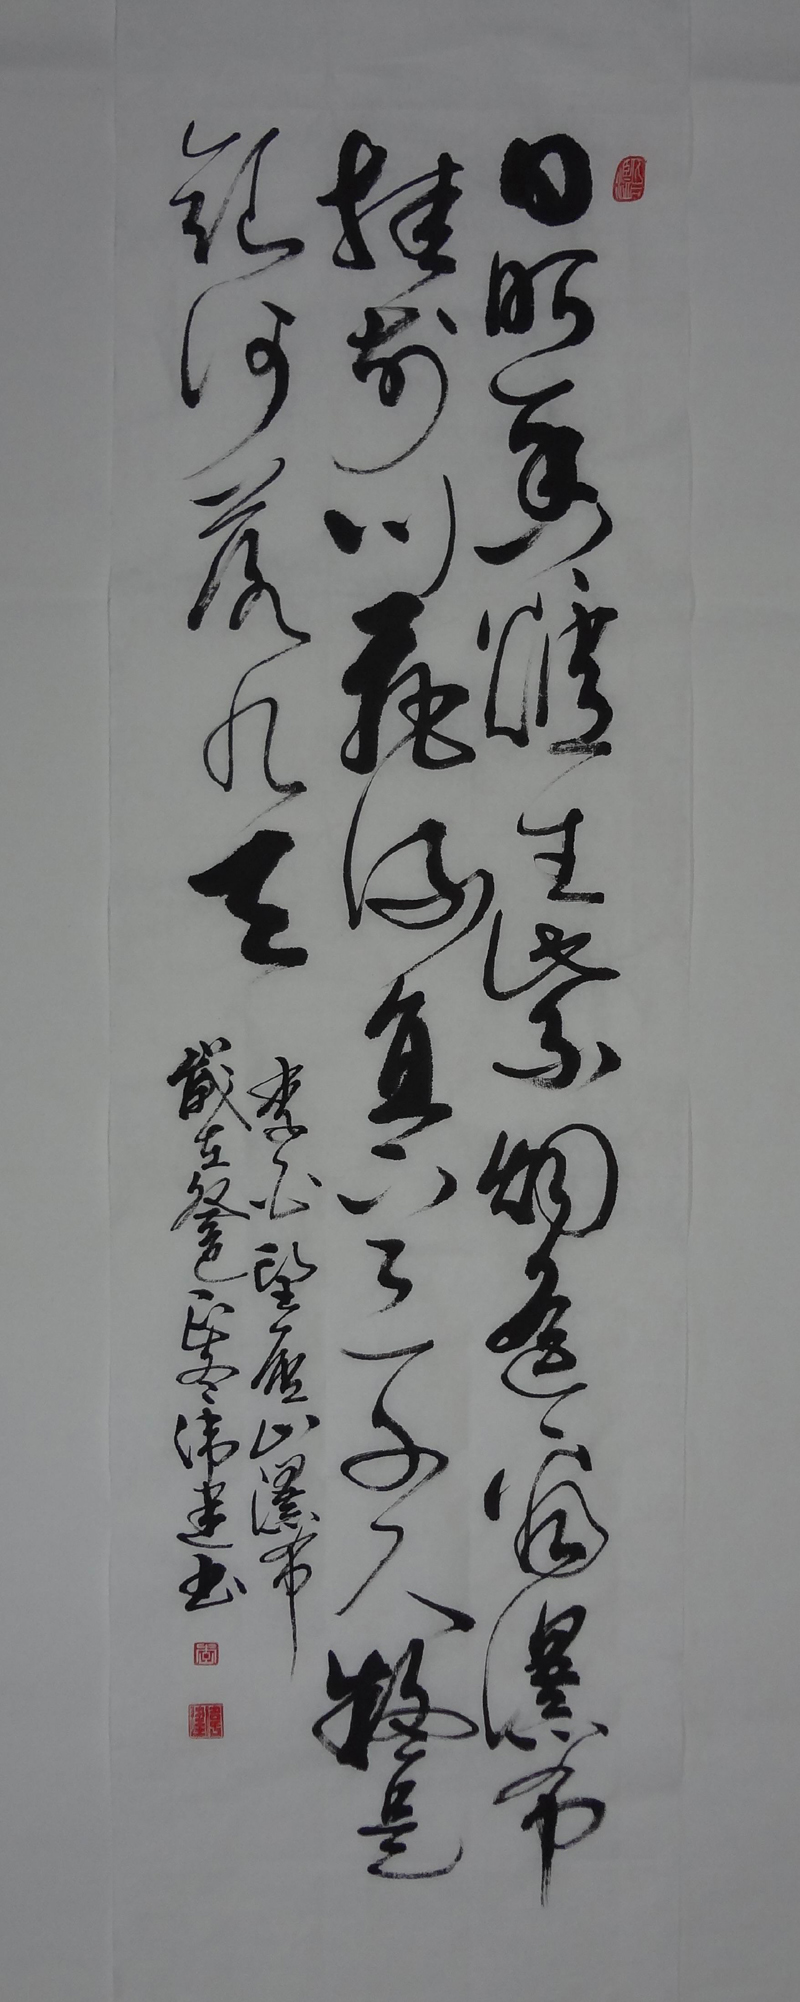 日照香爐生紫烟遥看瀑布
挂前川飛流直下三千尺疑是
銀河落九天
李白望廬山瀑布
歲在冬建书